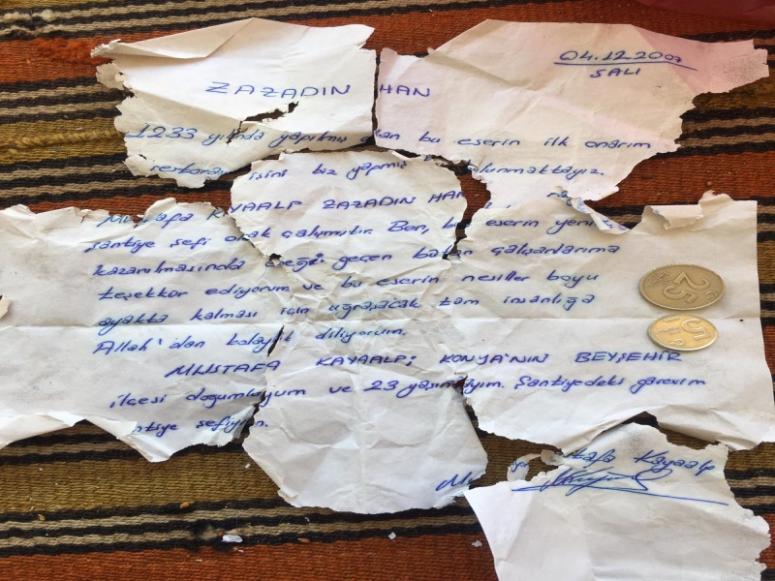 04.12.2007
SALI
ZAZADIN HAN
1233 yılında yapılmış olan bu eserin ilk onarım
restoras işini biz yapmış bulunmaktayız.
Mustafa KAYAALP ZAZADIN HAN
şantiye şefi olarak çalışmıştır. Ben, bu eserin yeni
kazanılmasında emeği geçen bütün çalışanlarıma
teşekkür ediyorum ve bu eserin nesiller boyu
ayakta kalması için uğraşacak tüm insanlığa
Allah'dan kolaylık diliyorum.
MUSTAFA KAYAALP; KONYA'NIN BEYŞEHİR
ilçesi doğumluyum ve 23 yaşındayım. Şantiyedeki görevim
ntiye şefiyim.
Mustafa Kayaalp
25
5